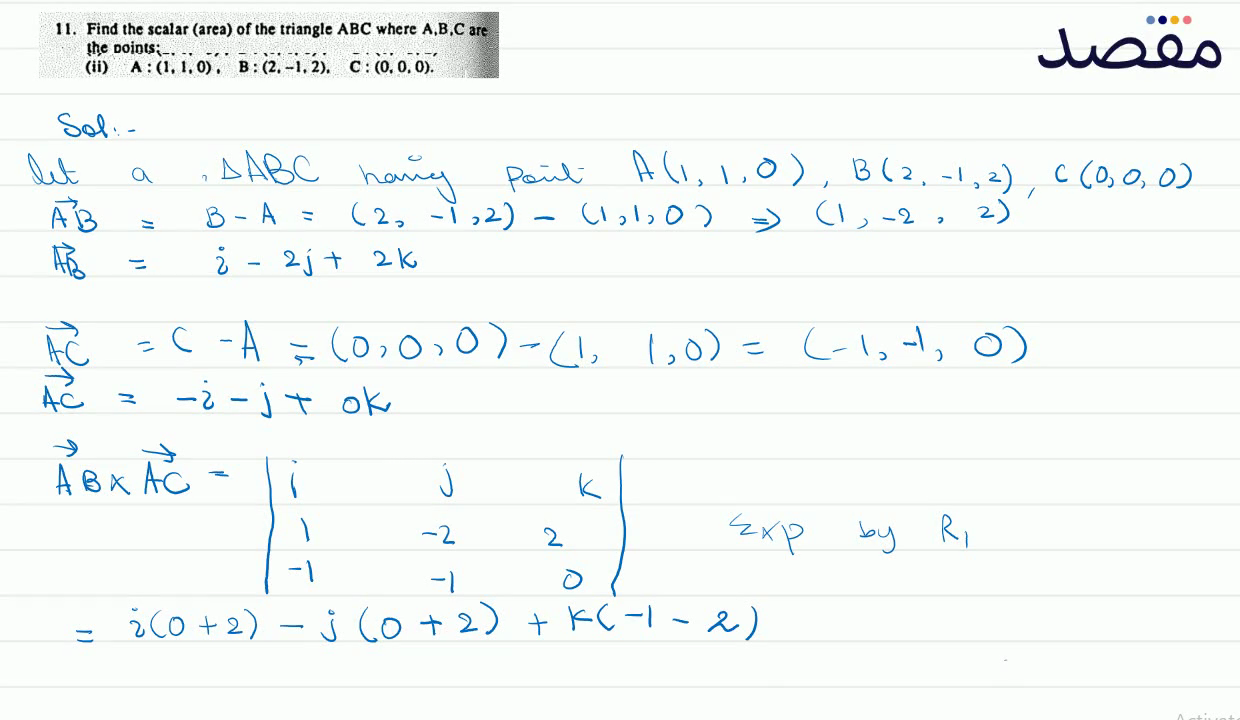 11. Find the scalar (area) of the triangle ABC where A,B,C are
the points:
(ii) A : (1, 1, 0), B : (2, -1, 2), C : (0, 0, 0).
مقصد
Sol:-
let a ΔABC having point A(1, 1, 0), B(2, -1, 2), C(0, 0, 0)
AB = B - A = (2, -1, 2) - (1, 1, 0) ⇒ (1, -2, 2)
AB = i - 2j + 2k
AC = C - A = (0, 0, 0) - (1, 1, 0) = (-1, -1, 0)
AC = -i - j + 0k
AB x AC = | i j k |
1 -2 2 Exp by R1
-1 -1 0
= i(0 + 2) - j(0 + 2) + k(-1 - 2)